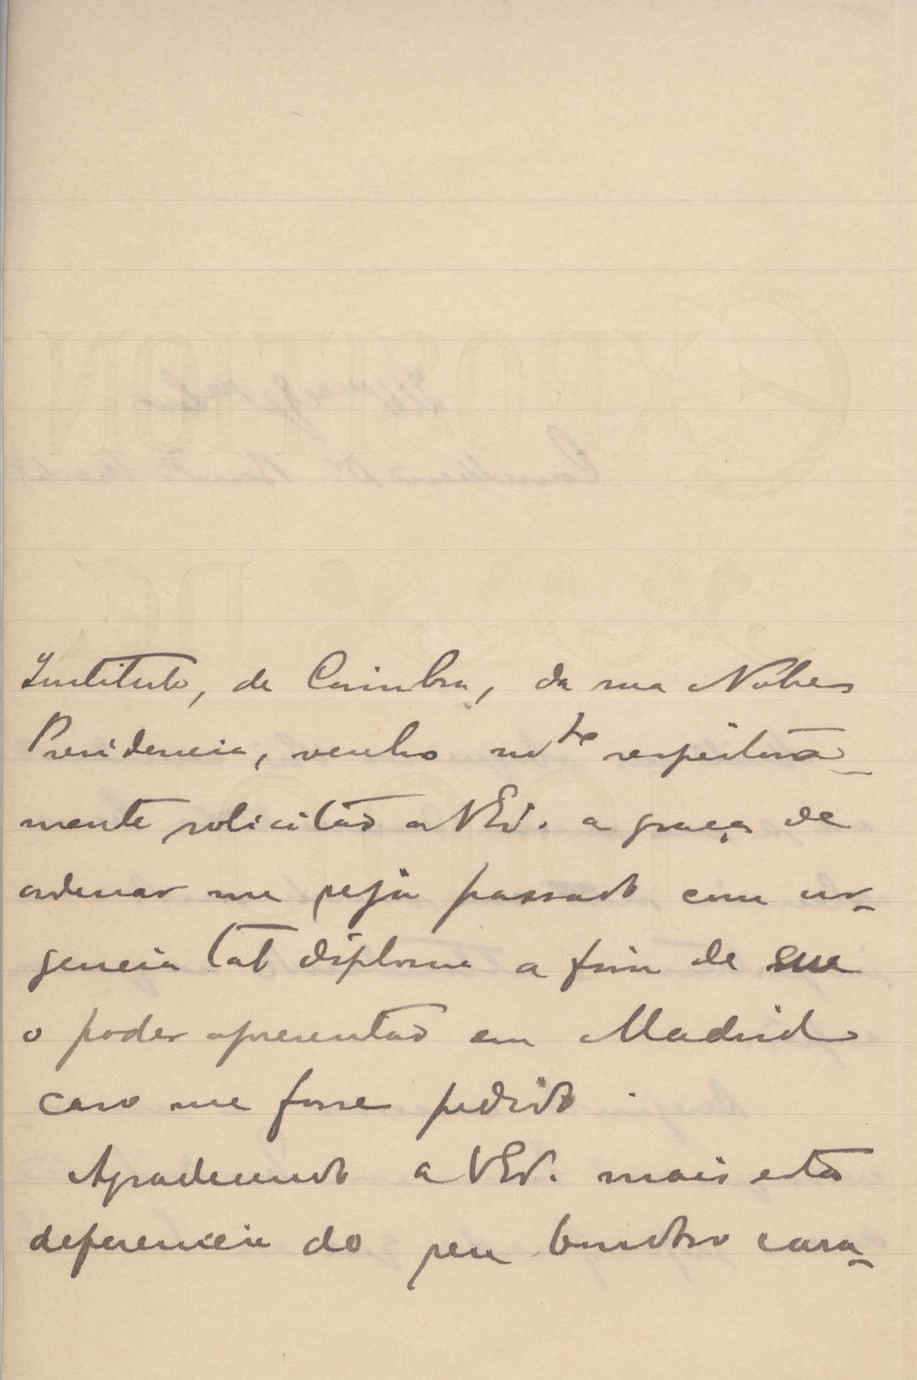 Instituto, de Coimbra, da sua Nobre
Presidencia, venho mto respeitosa-
mente solicitar a V Exª. a graça de
ordenar me seja passado com ur-
gencia tal diploma a fim de
o poder apresentar em Madrid
caso me fosse pedido.
Agradecendo a V Exª. mais esta
deferencia do seu bondoso cara-